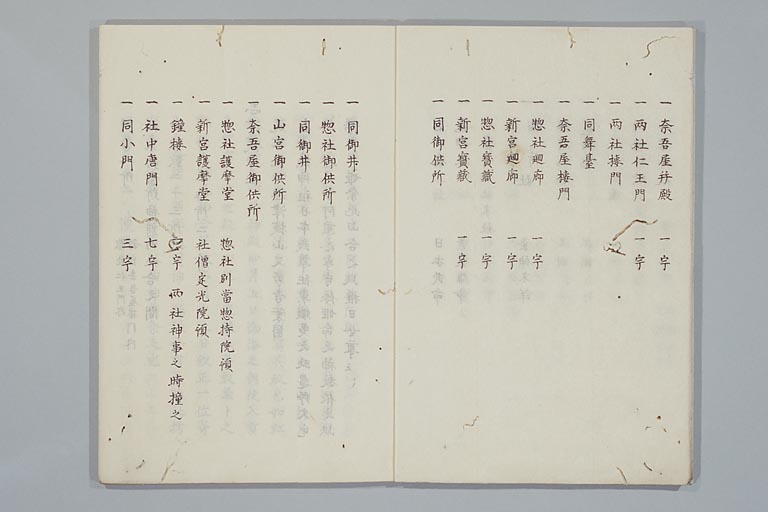 一 奈吾屋拜殿 一宇
一 両社仁王門 一宇
一 両社楼門
一 同舞臺
一 奈吾屋楼門
一 惣社廻廊 一宇
一 新宮廻廊 一宇
一 惣社寳藏 一宇
一 新宮寳藏 一宇
一 同御供所
一 同御井
一 惣社御供所
一 同御井
一 山宮御供所
一 奈吾屋御供所
一 惣社護摩堂 惣社別當惣持院預
一 新宮護摩堂 社僧定光院預
一 鐘楼 宇 両社神事之時撞之
一 社中唐門 七宇
一 同小門 三宇